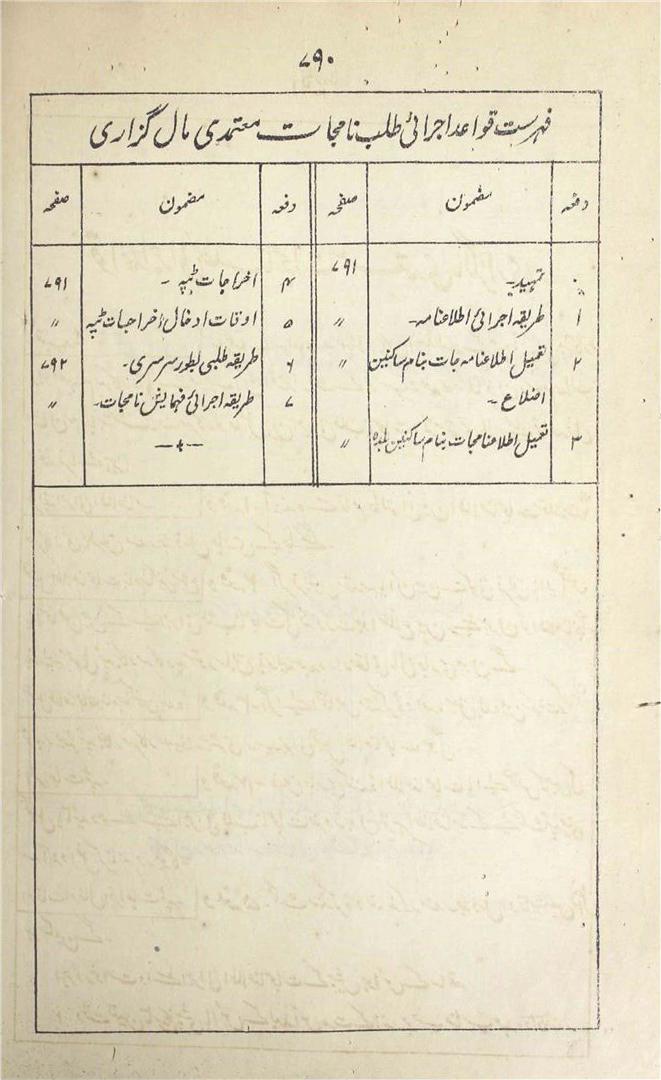 ۷۹۰
فہرست قواعد اجرائی طلب نامجات معتمدی مال گزاری
دفعہ مضمون صفحہ
۰ تمہید۔ ۷۹۱
۱ طریقہ اجرائی اطلاعنامہ۔ ″
۲ تعمیل اطلاعنامہ جات بنام ساکنین ″
اضلاع۔
۳ تعمیل اطلاعنامجات بنام ساکنین بلدہ ″
دفعہ مضمون صفحہ
۴ اخراجات ٹپہ۔ ۷۹۱
۵ اوقات ادخال اخراجات ٹپہ ″
۶ طریقہ طلبی بطور سرسری۔ ۷۹۲
۷ طریقہ اجرائی فہمایش نامجات۔ ″